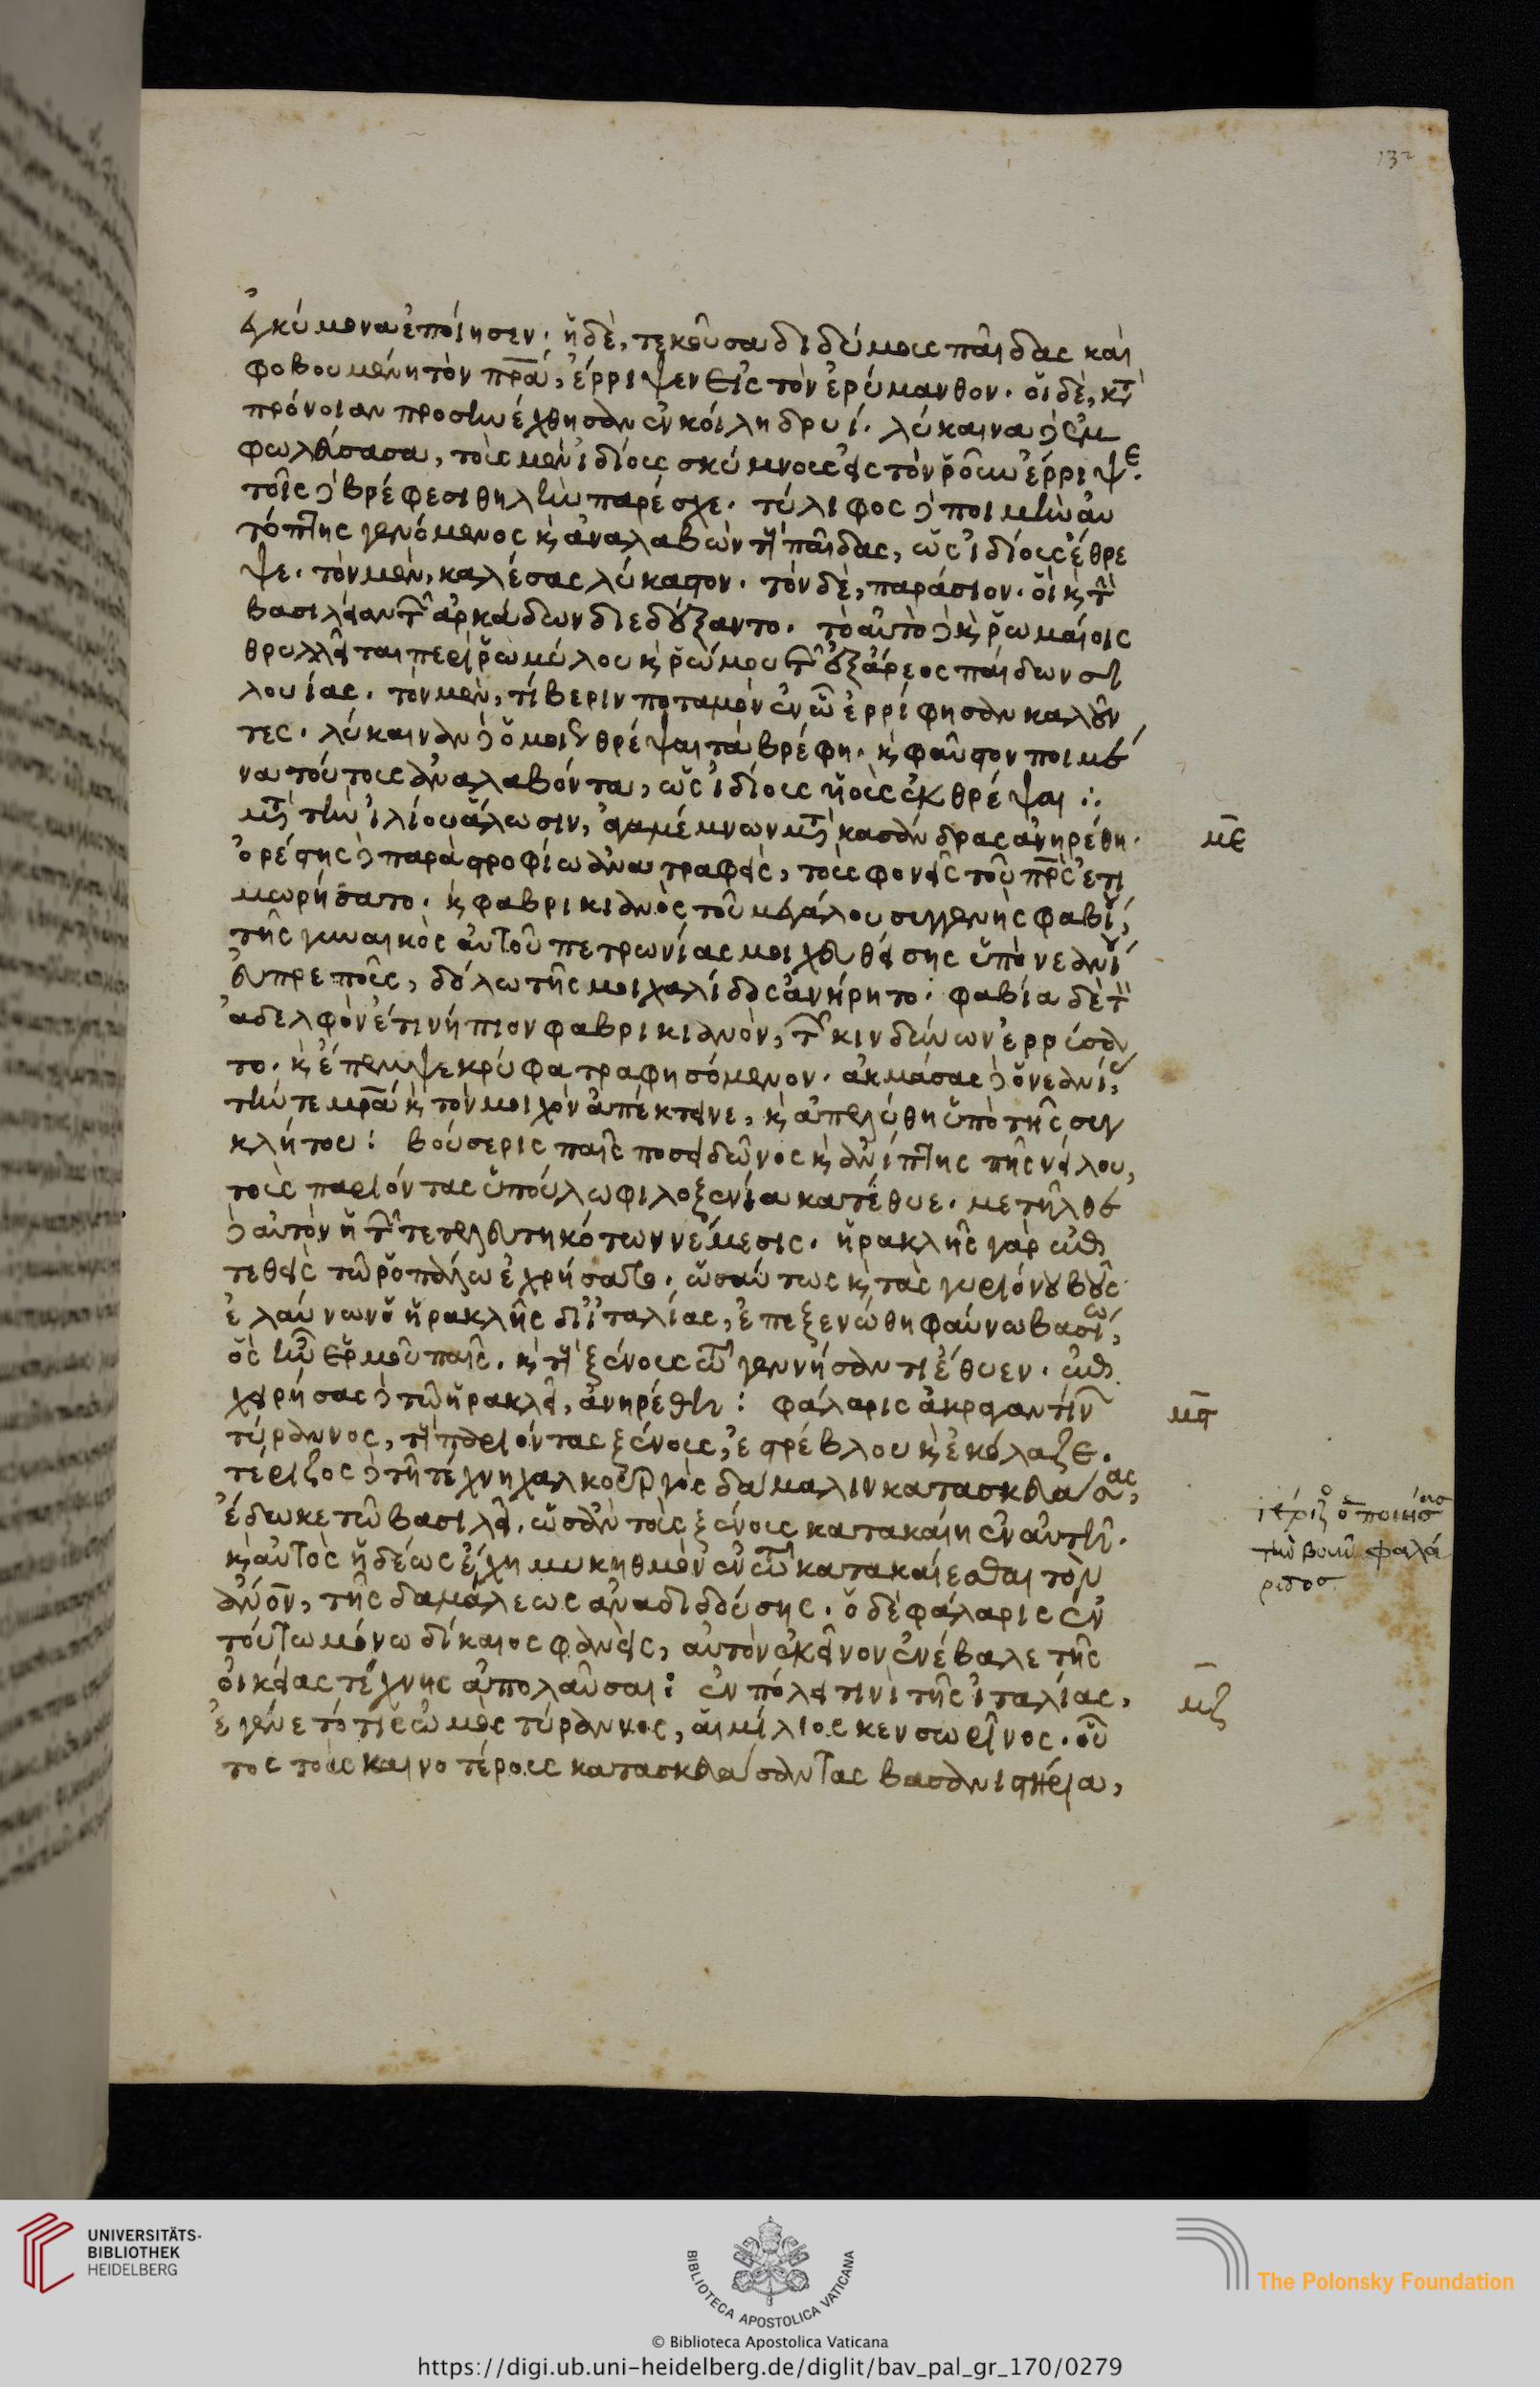 132
ἐγκύμονα ἐποίησεν· ἡ δὲ, τεκοῦσα διδύμους παῖδας καὶ
φοβουμένη τὸν πρα, ἔρριψεν εἰς τὸν ἐρύμανθον. οἱ δὲ, κτ
πρόνοιαν προσηνέχθησαν ἐν κοίλη δρυί. λύκαινα δὲ ἐμ
φωλεύσασα, τοὺς μὲν ἰδίους σκύμνους εἰς τὸν ῥοῦν ἔρριψε.
τοῖς δὲ βρέφεσι θηλὴν παρέσχε. τύλιφος δὲ ποιμὴν αὐ
τόπτης γενόμενος κ ἀναλαβὼν τοὺς παῖδας, ὡς ἰδίους ἔθρε
ψε. τὸν μὲν, καλέσας λύκαστον. τὸν δὲ, παράσιον. οἳ κ τὴν
βασιλείαν τῶν ἀρκάδων διεδέξαντο. τὸ αὐτὸ δὲ κ ῥωμαίοις
θρυλλεῖται περὶ ῥωμύλου κ ῥώμου τῶν ἐξ ἄρεος παίδων σι
λουίας. τὸν μὲν, τίβεριν ποταμὸν ἐν ὧ ἐρρίφησαν καλοῦν
τες. λύκαιναν δὲ ὁμοίως θρέψαι τὰ βρέφη. κ φαῦστον ποιμέ
να τούτους ἀναλαβόντα, ὡς ἰδίους υἱοὺς ἐκθρέψαι ∴
μτ τὴν ἰλίου ἅλωσιν, ἀγαμέμνων μτ κασάνδρας ἀνηρέθη.
ὀρέστης δὲ παρὰ στροφίω ἀνατραφεὶς, τοὺς φονεῖς τοῦ πρς ἐτι
μωρήσατο. κ φαβρικιανὸς τοῦ μεγάλου συγγενὴς φαβίου,
τῆς γυναικὸς αὐτοῦ πετρωνίας μοιχευθείσης ὑπὸ νεανίου
εὐπρεποῦς, δόλω τῆς μοιχαλίδος ἀνήρητο. φαβία δὲ τὸν
ἀδελφὸν ἔτι νήπιον φαβρικιανὸν, τῶν κινδύνων ἐρρύσα
το. κ ἔπεμψε κρύφα τραφησόμενον. ἀκμάσας δὲ ὁ νεανίας,
τήν τε μρα κ τὸν μοιχὸν ἀπέκτεινε, κ ἀπελύθη ὑπὸ τῆς συγ
κλήτου: βούσερις παῖς ποσειδῶνος κ ἀνίππης τῆς νείλου,
τοὺς παριόντας ὑπούλω φιλοξενία κατέθυε. μετῆλθε
δὲ αὐτὸν ἡ τῶν τετελευτηκότων νέμεσις. ἡρακλῆς γὰρ ἐπι
τεθεὶς τῶ ῥοπάλω ἐχρήσατο. ὡσαύτως κ τὰς γηριόνου βοῦς
ἐλαύνων ὁ ἡρακλῆς δι ἰταλίας, ἐπεξενώθη φαύνω βασιλεῖ,
ὃς ἦν ἑρμοῦ παῖς. κ τοὺς ξένους τῶ γεννήσαντι ἔθυεν. ἐπι
χειρήσας δὲ τῶ ἡρακλεῖ, ἀνηρέθη: φάλαρις ἀκραγαντίνων
τύραννος, τοὺς παριόντας ξένους, ἐστρέβλου κ ἐκόλαζε.
τέριλλος δὲ τῆ τέχνη χαλκουργὸς δάμαλιν κατασκευάσας,
ἔδωκε τῶ βασιλεῖ, ὡς ἂν τοὺς ξένους κατακαίη ἐν αὐτῆ.
κ αὐτὸς ἡδέως ἔχη μυκηθμὸν ἐν τῶ κατακαίεσθαι τὸν
ἄνον, τῆς δαμάλεως ἀναδιδούσης. ὁ δὲ φάλαρις ἐν
τούτω μόνω δίκαιος φανεὶς, αὐτὸν ἐκεῖνον ἐνέβαλε τῆς
οἰκείας τέχνης ἀπολαῦσαι: ἐν πόλει τινὶ τῆς ἰταλίας,
ἐγένετό τις ὠμὸς τύραννος, αἰμίλιος κενσωρῖνος. οὗ
τος τοὺς καινοτέρους κατασκευάσαντας βασανιστήρια,
με
μϛ
ὁ ποιήσας
τὴν βοῦν φαλά
ριδος
μζ
UNIVERSITÄTS-
BIBLIOTHEK
HEIDELBERG
BIBLIOTECA APOSTOLICA VATICANA
The Polonsky Foundation
© Biblioteca Apostolica Vaticana
https://digi.ub.uni-heidelberg.de/diglit/bav_pal_gr_170/0279